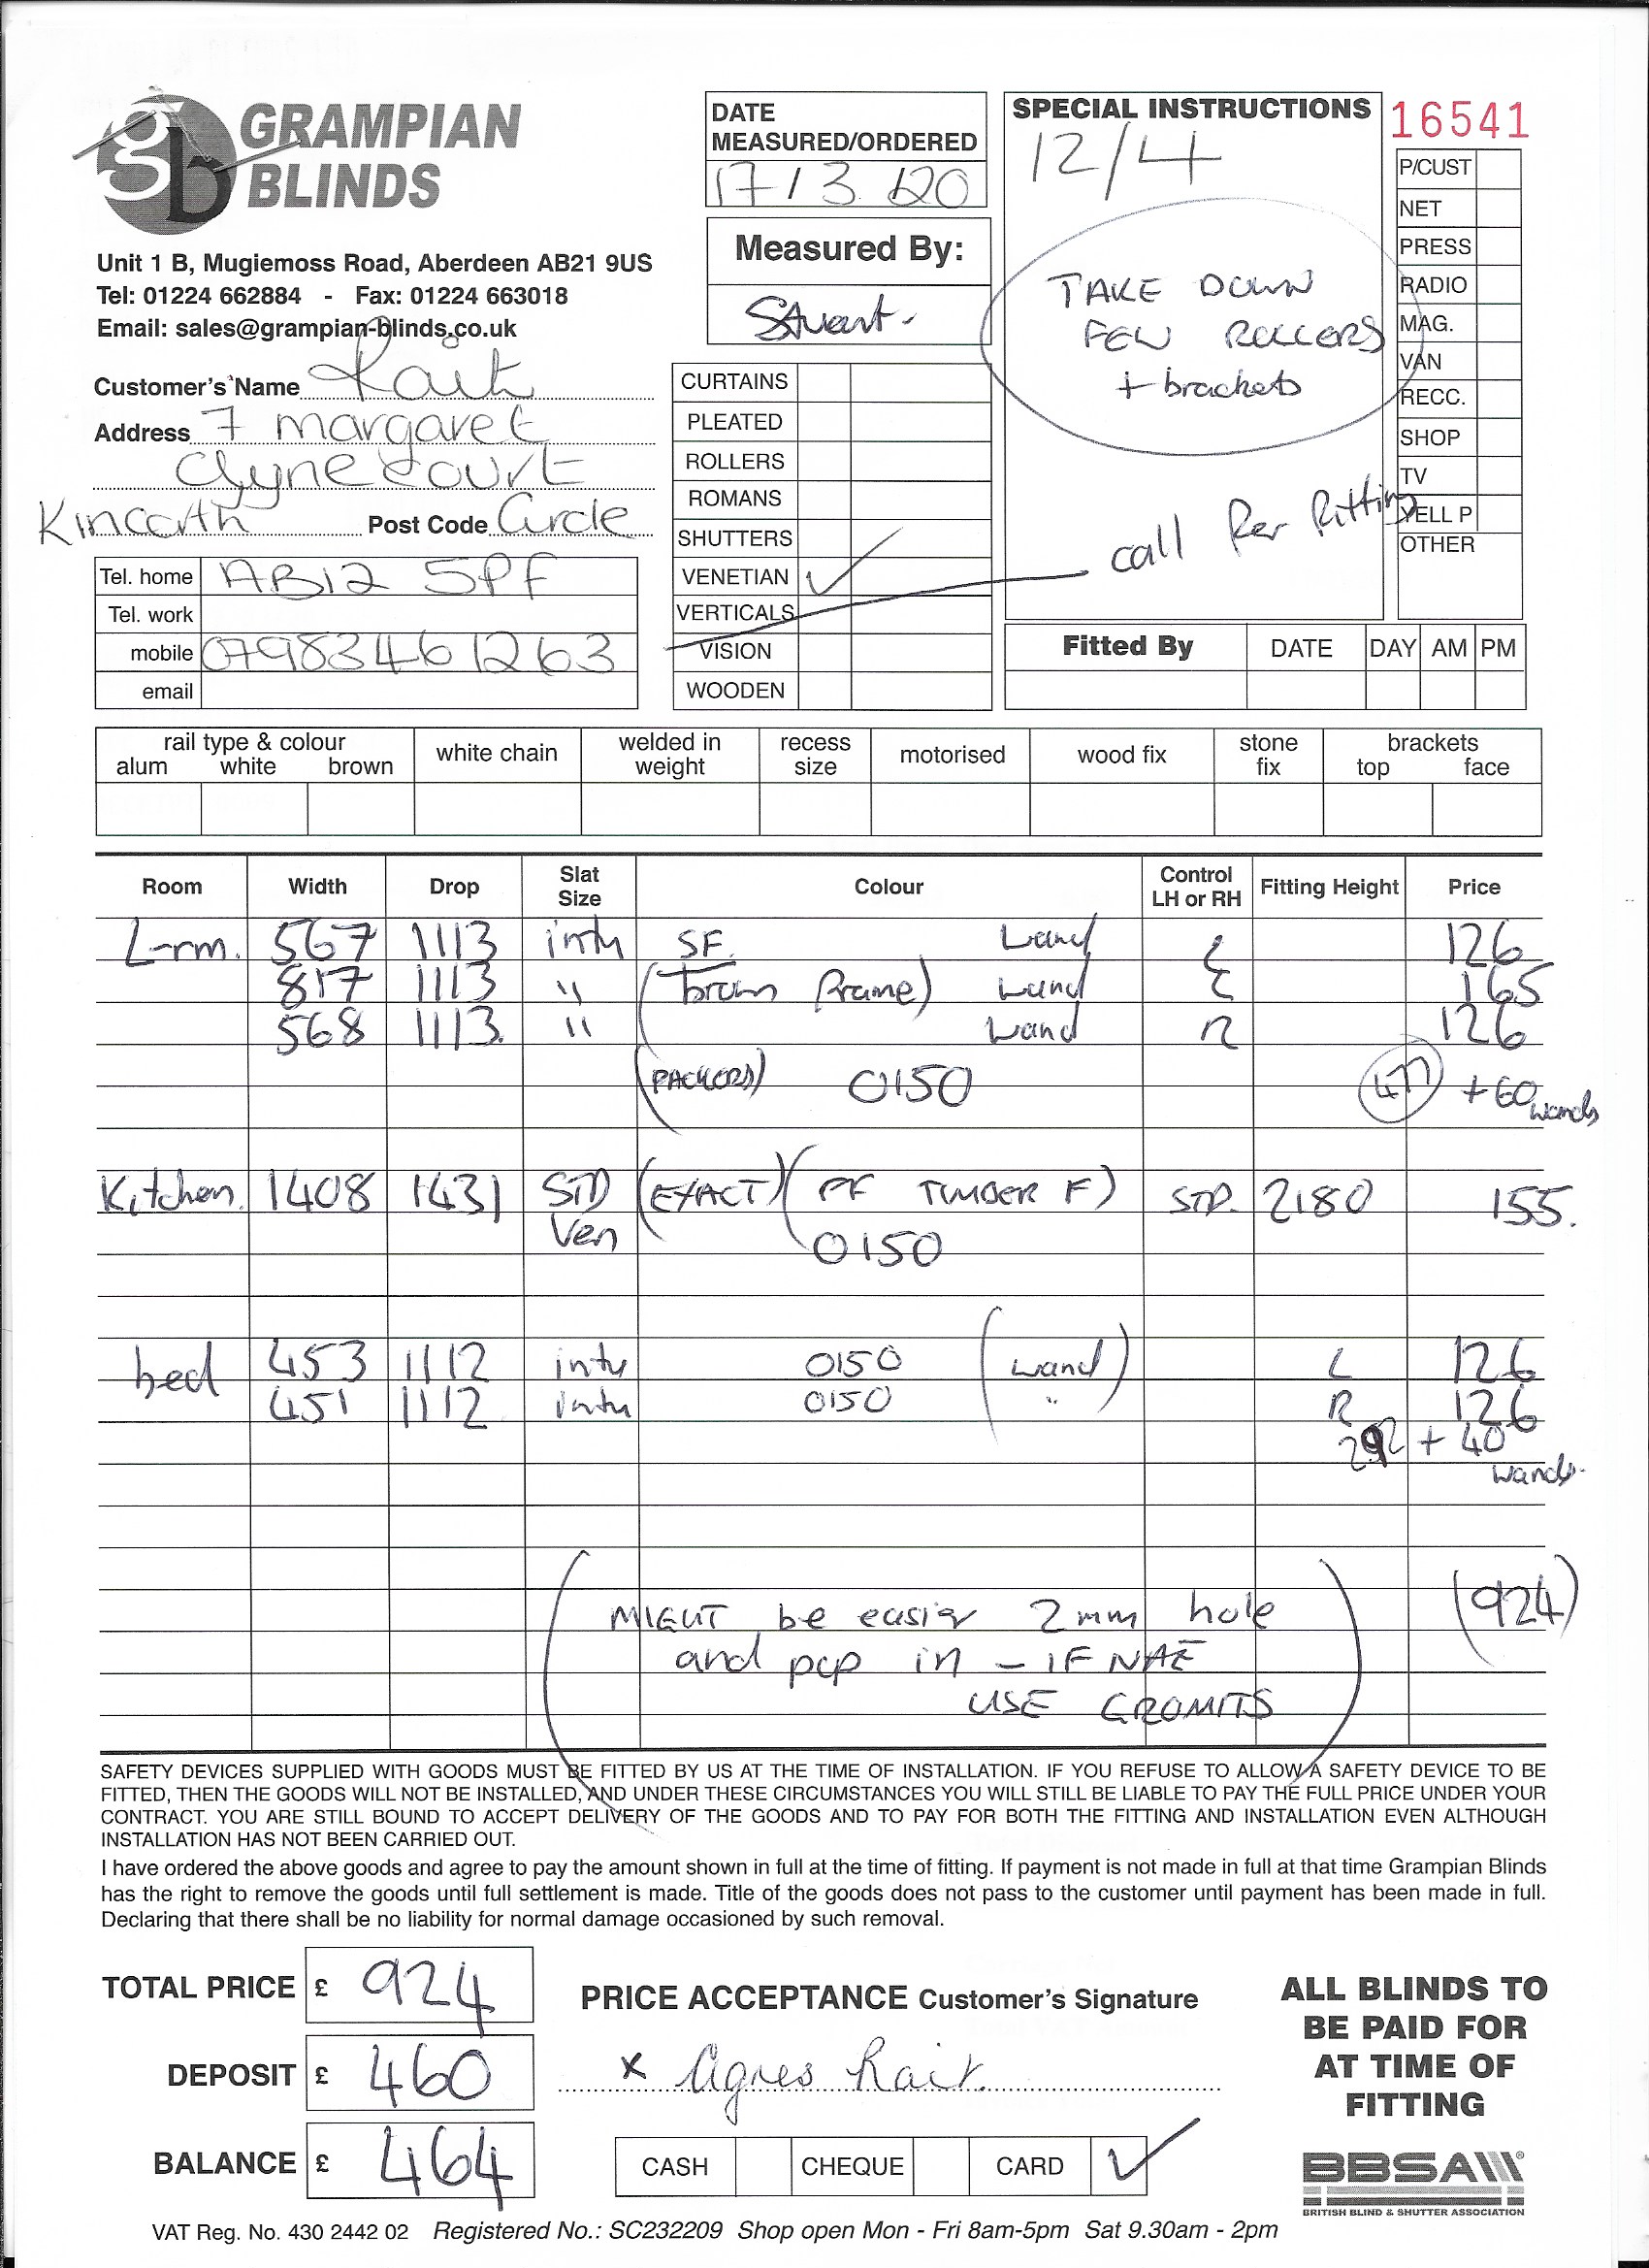 GRAMPIAN
BLINDS
gb
Unit 1 B, Mugiemoss Road, Aberdeen AB21 9US
Tel: 01224 662884 - Fax: 01224 663018
Email: sales@grampian-blinds.co.uk
Customer's Name Rait
Address 7 margaret
Clyne Court
Kincorth Post Code Circle
Tel. home AB12 5PF
Tel. work
mobile 07983461263
email
DATE
MEASURED/ORDERED
17/3/20
Measured By:
Stuart.
CURTAINS
PLEATED
ROLLERS
ROMANS
SHUTTERS
VENETIAN ✓
VERTICALS
VISION
WOODEN
SPECIAL INSTRUCTIONS
12/4
TAKE DOWN
FEW ROLLERS
+ brackets
call for fitting
16541
P/CUST
NET
PRESS
RADIO
MAG.
VAN
RECC.
SHOP
TV
YELL P
OTHER
Fitted By DATE DAY AM PM
rail type & colour
alum white brown
white chain
welded in
weight
recess
size
motorised
wood fix
stone
fix
brackets
top face
Room Width Drop Slat Size Colour Control LH or RH Fitting Height Price
L-rm. 567 1113 intu SF. wand L 126
817 1113 " (brown frame) wand L 165
568 1113. " wand R 126
(PACKERS) 0150 477 +60 wands
Kitchen. 1408 1431 STD (EXACT) (PF TIMBER F) STD. 2180 155.
Ven 0150
bed 453 1112 intu 0150 (wand) L 126
451 1112 intu 0150 " R 126
292 + 40
wands.
(MIGHT be easier 2mm hole (924)
and pop in - IF NAE
USE GROMITS)
SAFETY DEVICES SUPPLIED WITH GOODS MUST BE FITTED BY US AT THE TIME OF INSTALLATION. IF YOU REFUSE TO ALLOW A SAFETY DEVICE TO BE
FITTED, THEN THE GOODS WILL NOT BE INSTALLED, AND UNDER THESE CIRCUMSTANCES YOU WILL STILL BE LIABLE TO PAY THE FULL PRICE UNDER YOUR
CONTRACT. YOU ARE STILL BOUND TO ACCEPT DELIVERY OF THE GOODS AND TO PAY FOR BOTH THE FITTING AND INSTALLATION EVEN ALTHOUGH
INSTALLATION HAS NOT BEEN CARRIED OUT.
I have ordered the above goods and agree to pay the amount shown in full at the time of fitting. If payment is not made in full at that time Grampian Blinds
has the right to remove the goods until full settlement is made. Title of the goods does not pass to the customer until payment has been made in full.
Declaring that there shall be no liability for normal damage occasioned by such removal.
TOTAL PRICE £ 924
DEPOSIT £ 460
BALANCE £ 464
PRICE ACCEPTANCE Customer's Signature
x Agnes Rait.
CASH CHEQUE CARD ✓
ALL BLINDS TO
BE PAID FOR
AT TIME OF
FITTING
BBSA
BRITISH BLIND & SHUTTER ASSOCIATION
VAT Reg. No. 430 2442 02 Registered No.: SC232209 Shop open Mon - Fri 8am-5pm Sat 9.30am - 2pm